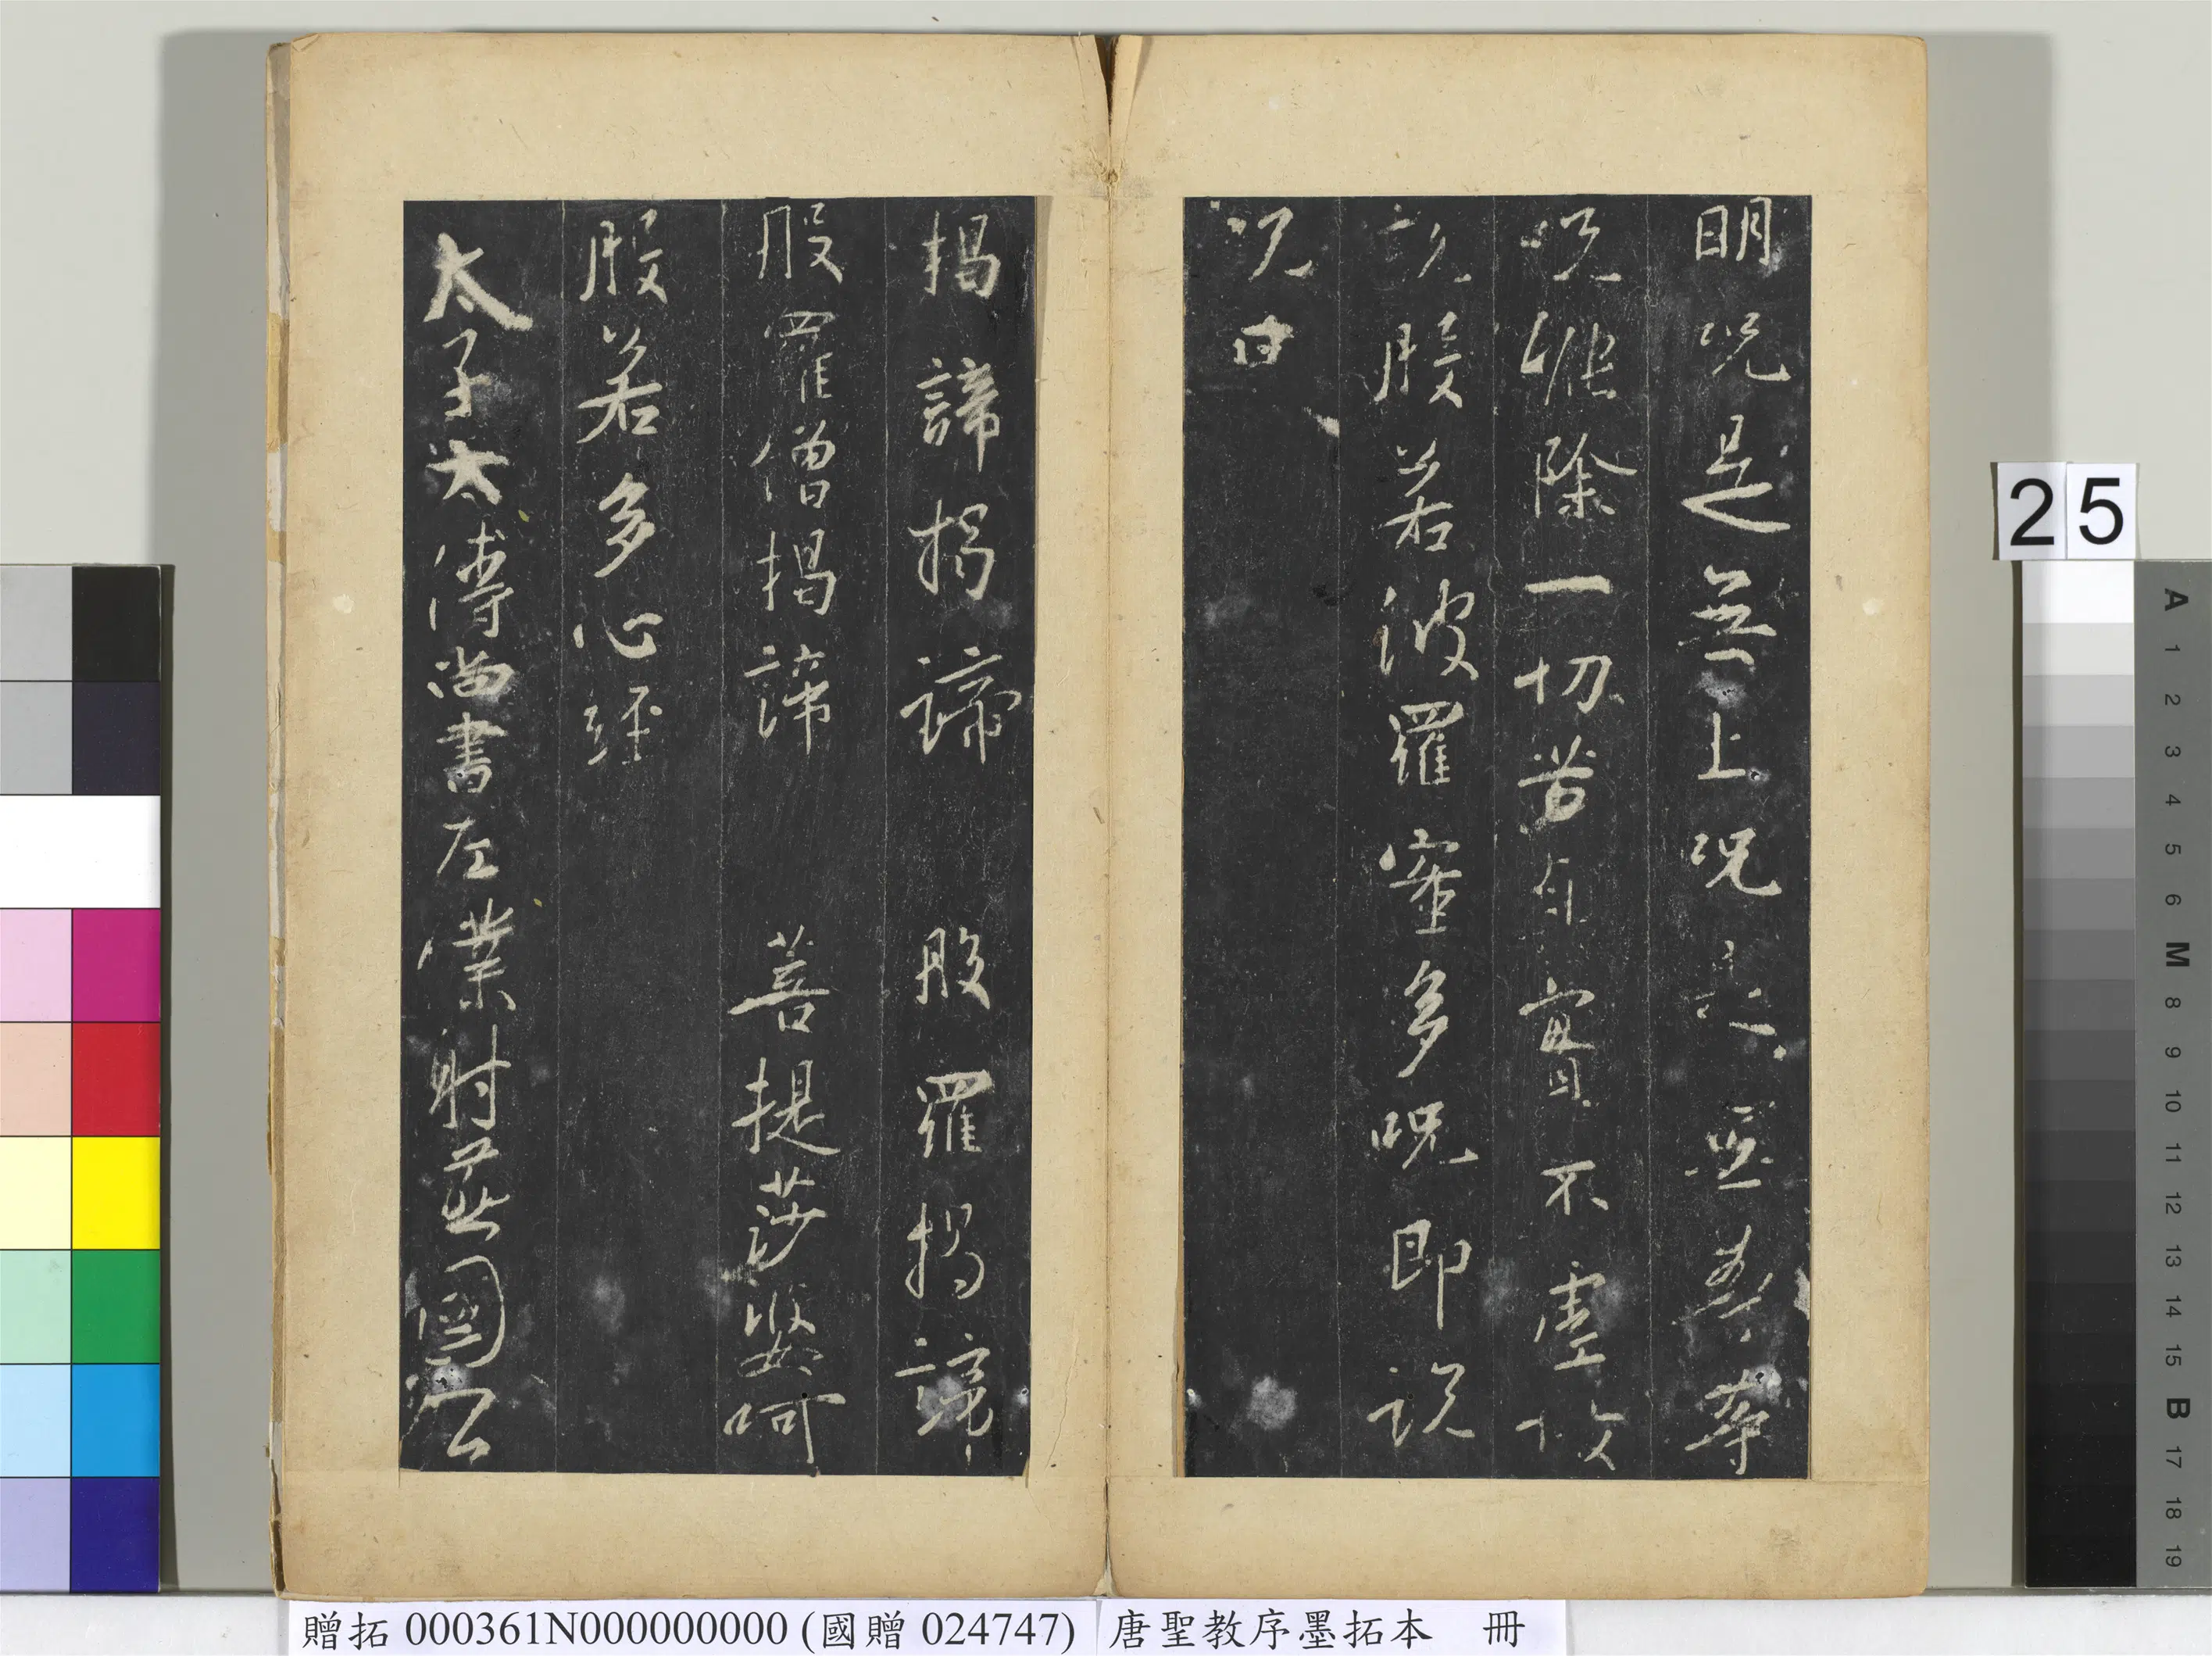 明呪是無上呪是無等等
呪能除一切苦真實不虛故
說般若波羅蜜多呪即說
呪曰
揭諦揭諦 般羅揭諦
般羅僧揭諦 菩提莎婆呵
般若多心經
太子太傅尚書左僕射燕國公
25
A 1 2 3 4 5 6 M 8 9 10 11 12 13 14 15 B 17 18 19
贈拓 000361N000000000 (國贈 024747) 唐聖教序墨拓本 冊